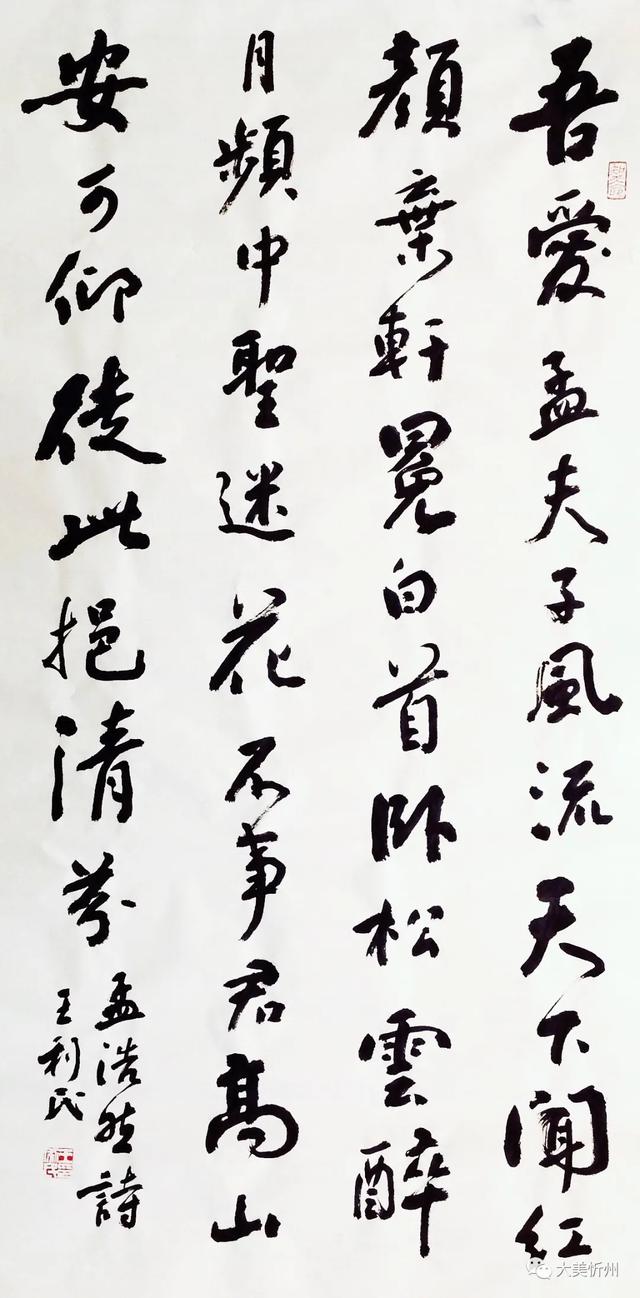 吾愛孟夫子風流天下聞紅
顔棄軒冕白首臥松雲醉
月頻中聖迷花不事君高山
安可仰徒此挹清芬
孟浩然詩
王利民
大美忻州